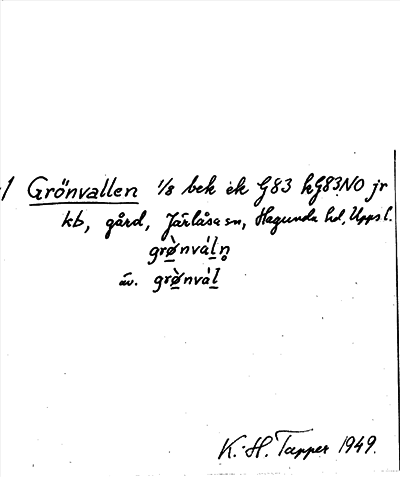 1 Grönvallen 1/8 bek ek G83 hG83NO jr
kb, gård, Järlåsa sn, Hagunda hd, Upps l.
grø̀nváln̥
äv. grø̀nvál
K.-H. Tapper 1949.